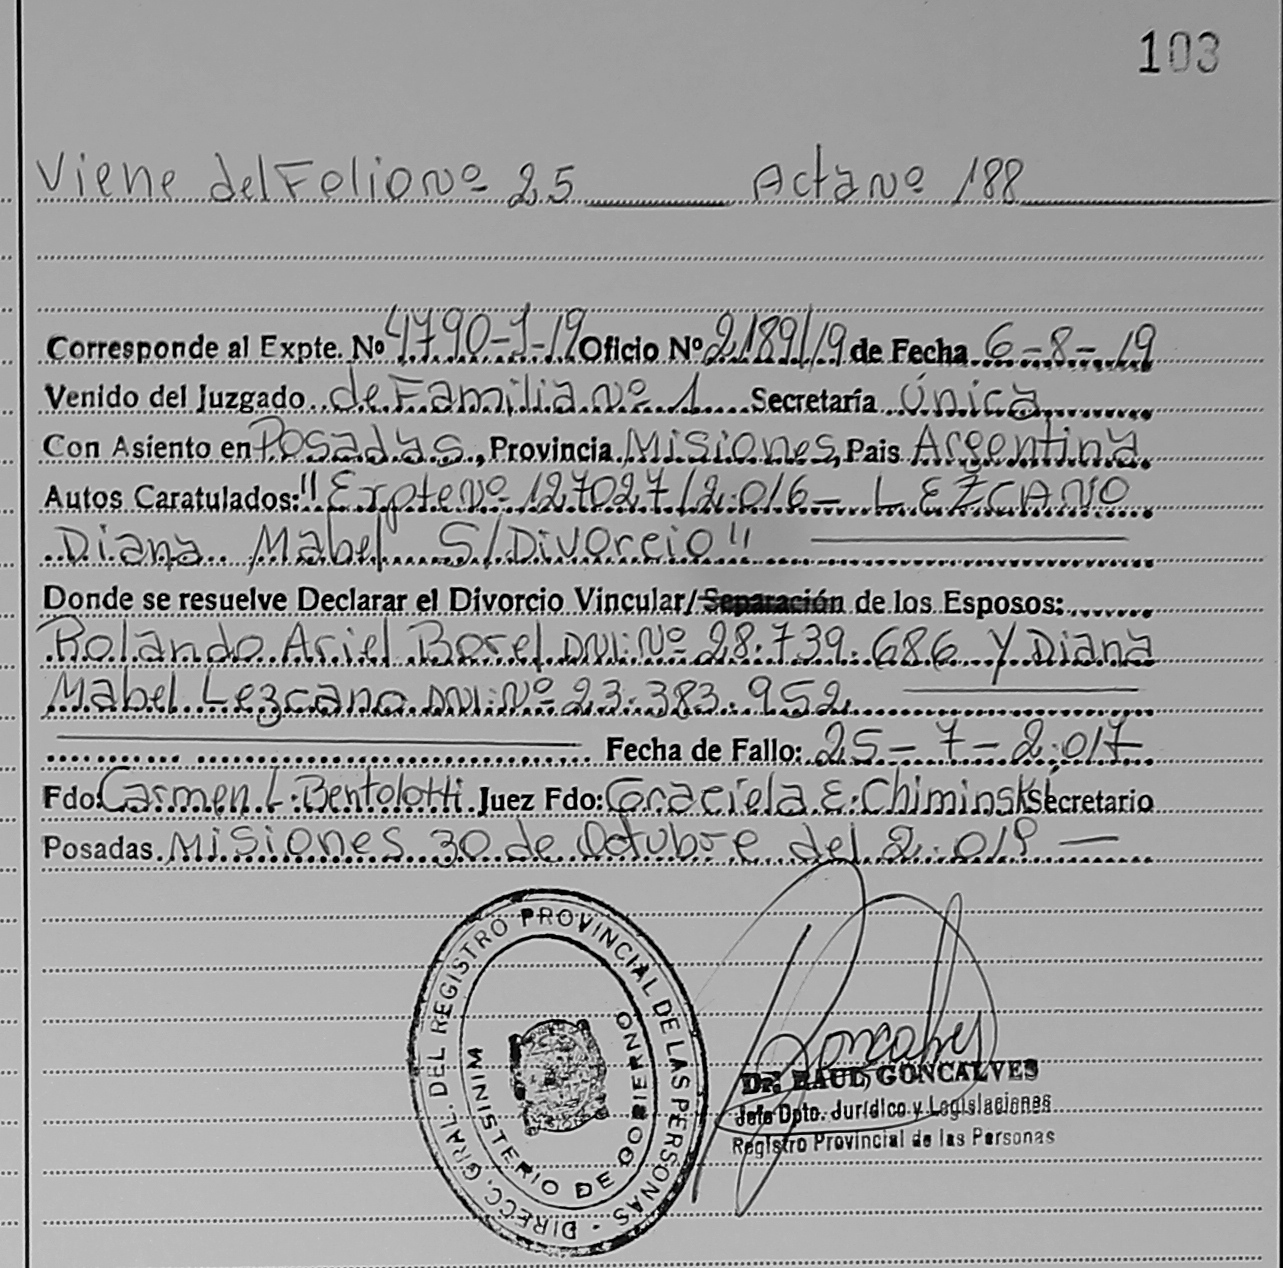 103
Viene del Folio nº 25 Acta nº 188
Corresponde al Expte. Nº 4790-J-19 Oficio Nº 2189/19 de Fecha 6-8-19
Venido del Juzgado de Familia nº 1 Secretaría Única
Con Asiento en Posadas, Provincia Misiones, Pais Argentina
Autos Caratulados: "Expte Nº 127027/2.016- LEZCANO
Diana Mabel S/Divorcio"
Donde se resuelve Declarar el Divorcio Vincular/Separación de los Esposos:
Rolando Ariel Borel DNI: Nº 28.739.686 y Diana
Mabel Lezcano DNI: Nº 23.383.952
Fecha de Fallo: 25-7-2.017
Fdo: Carmen L. Bentolotti Juez Fdo: Graciela E. Chiminski Secretario
Posadas Misiones 30 de Octubre del 2.019 -
DIRECC. GRAL. DEL REGISTRO PROVINCIAL DE LAS PERSONAS -
MINISTERIO DE GOBIERNO
Dr. RAUL GONCALVES
Jefe Dpto. Jurídico y Legislaciones
Registro Provincial de las Personas